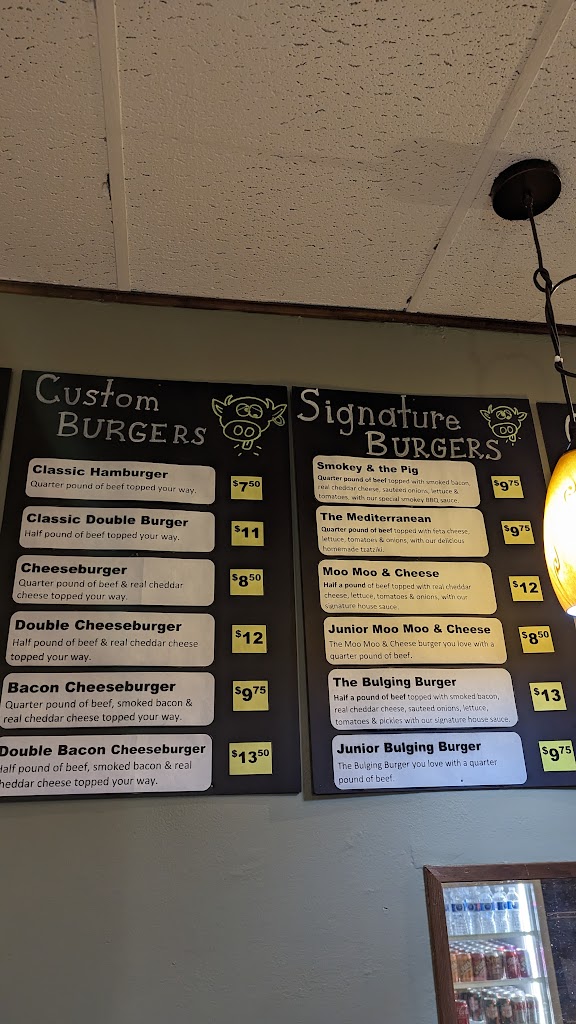 Custom
BURGERS
Classic Hamburger
Quarter pound of beef topped your way.
$7.50
Classic Double Burger
Half pound of beef topped your way.
$11
Cheeseburger
Quarter pound of beef & real cheddar
cheese topped your way.
$8.50
Double Cheeseburger
Half pound of beef & real cheddar cheese
topped your way.
$12
Bacon Cheeseburger
Quarter pound of beef, smoked bacon &
real cheddar cheese topped your way.
$9.75
Double Bacon Cheeseburger
Half pound of beef, smoked bacon & real
cheddar cheese topped your way.
$13.50
Signature
BURGERS
Smokey & the Pig
Quarter pound of beef topped with smoked bacon,
real cheddar cheese, sauteed onions, lettuce &
tomatoes, with our special smokey BBQ sauce.
$9.75
The Mediterranean
Quarter pound of beef topped with feta cheese,
lettuce, tomatoes & onions, with our delicious
homemade tzatziki.
$9.75
Moo Moo & Cheese
Half a pound of beef topped with real cheddar
cheese, lettuce, tomatoes & onions, with our
signature house sauce.
$12
Junior Moo Moo & Cheese
The Moo Moo & Cheese burger you love with a
quarter pound of beef.
$8.50
The Bulging Burger
Half a pound of beef topped with smoked bacon,
real cheddar cheese, sauteed onions, lettuce,
tomatoes & pickles with our signature house sauce.
$13
Junior Bulging Burger
The Bulging Burger you love with a quarter
pound of beef.
$9.75